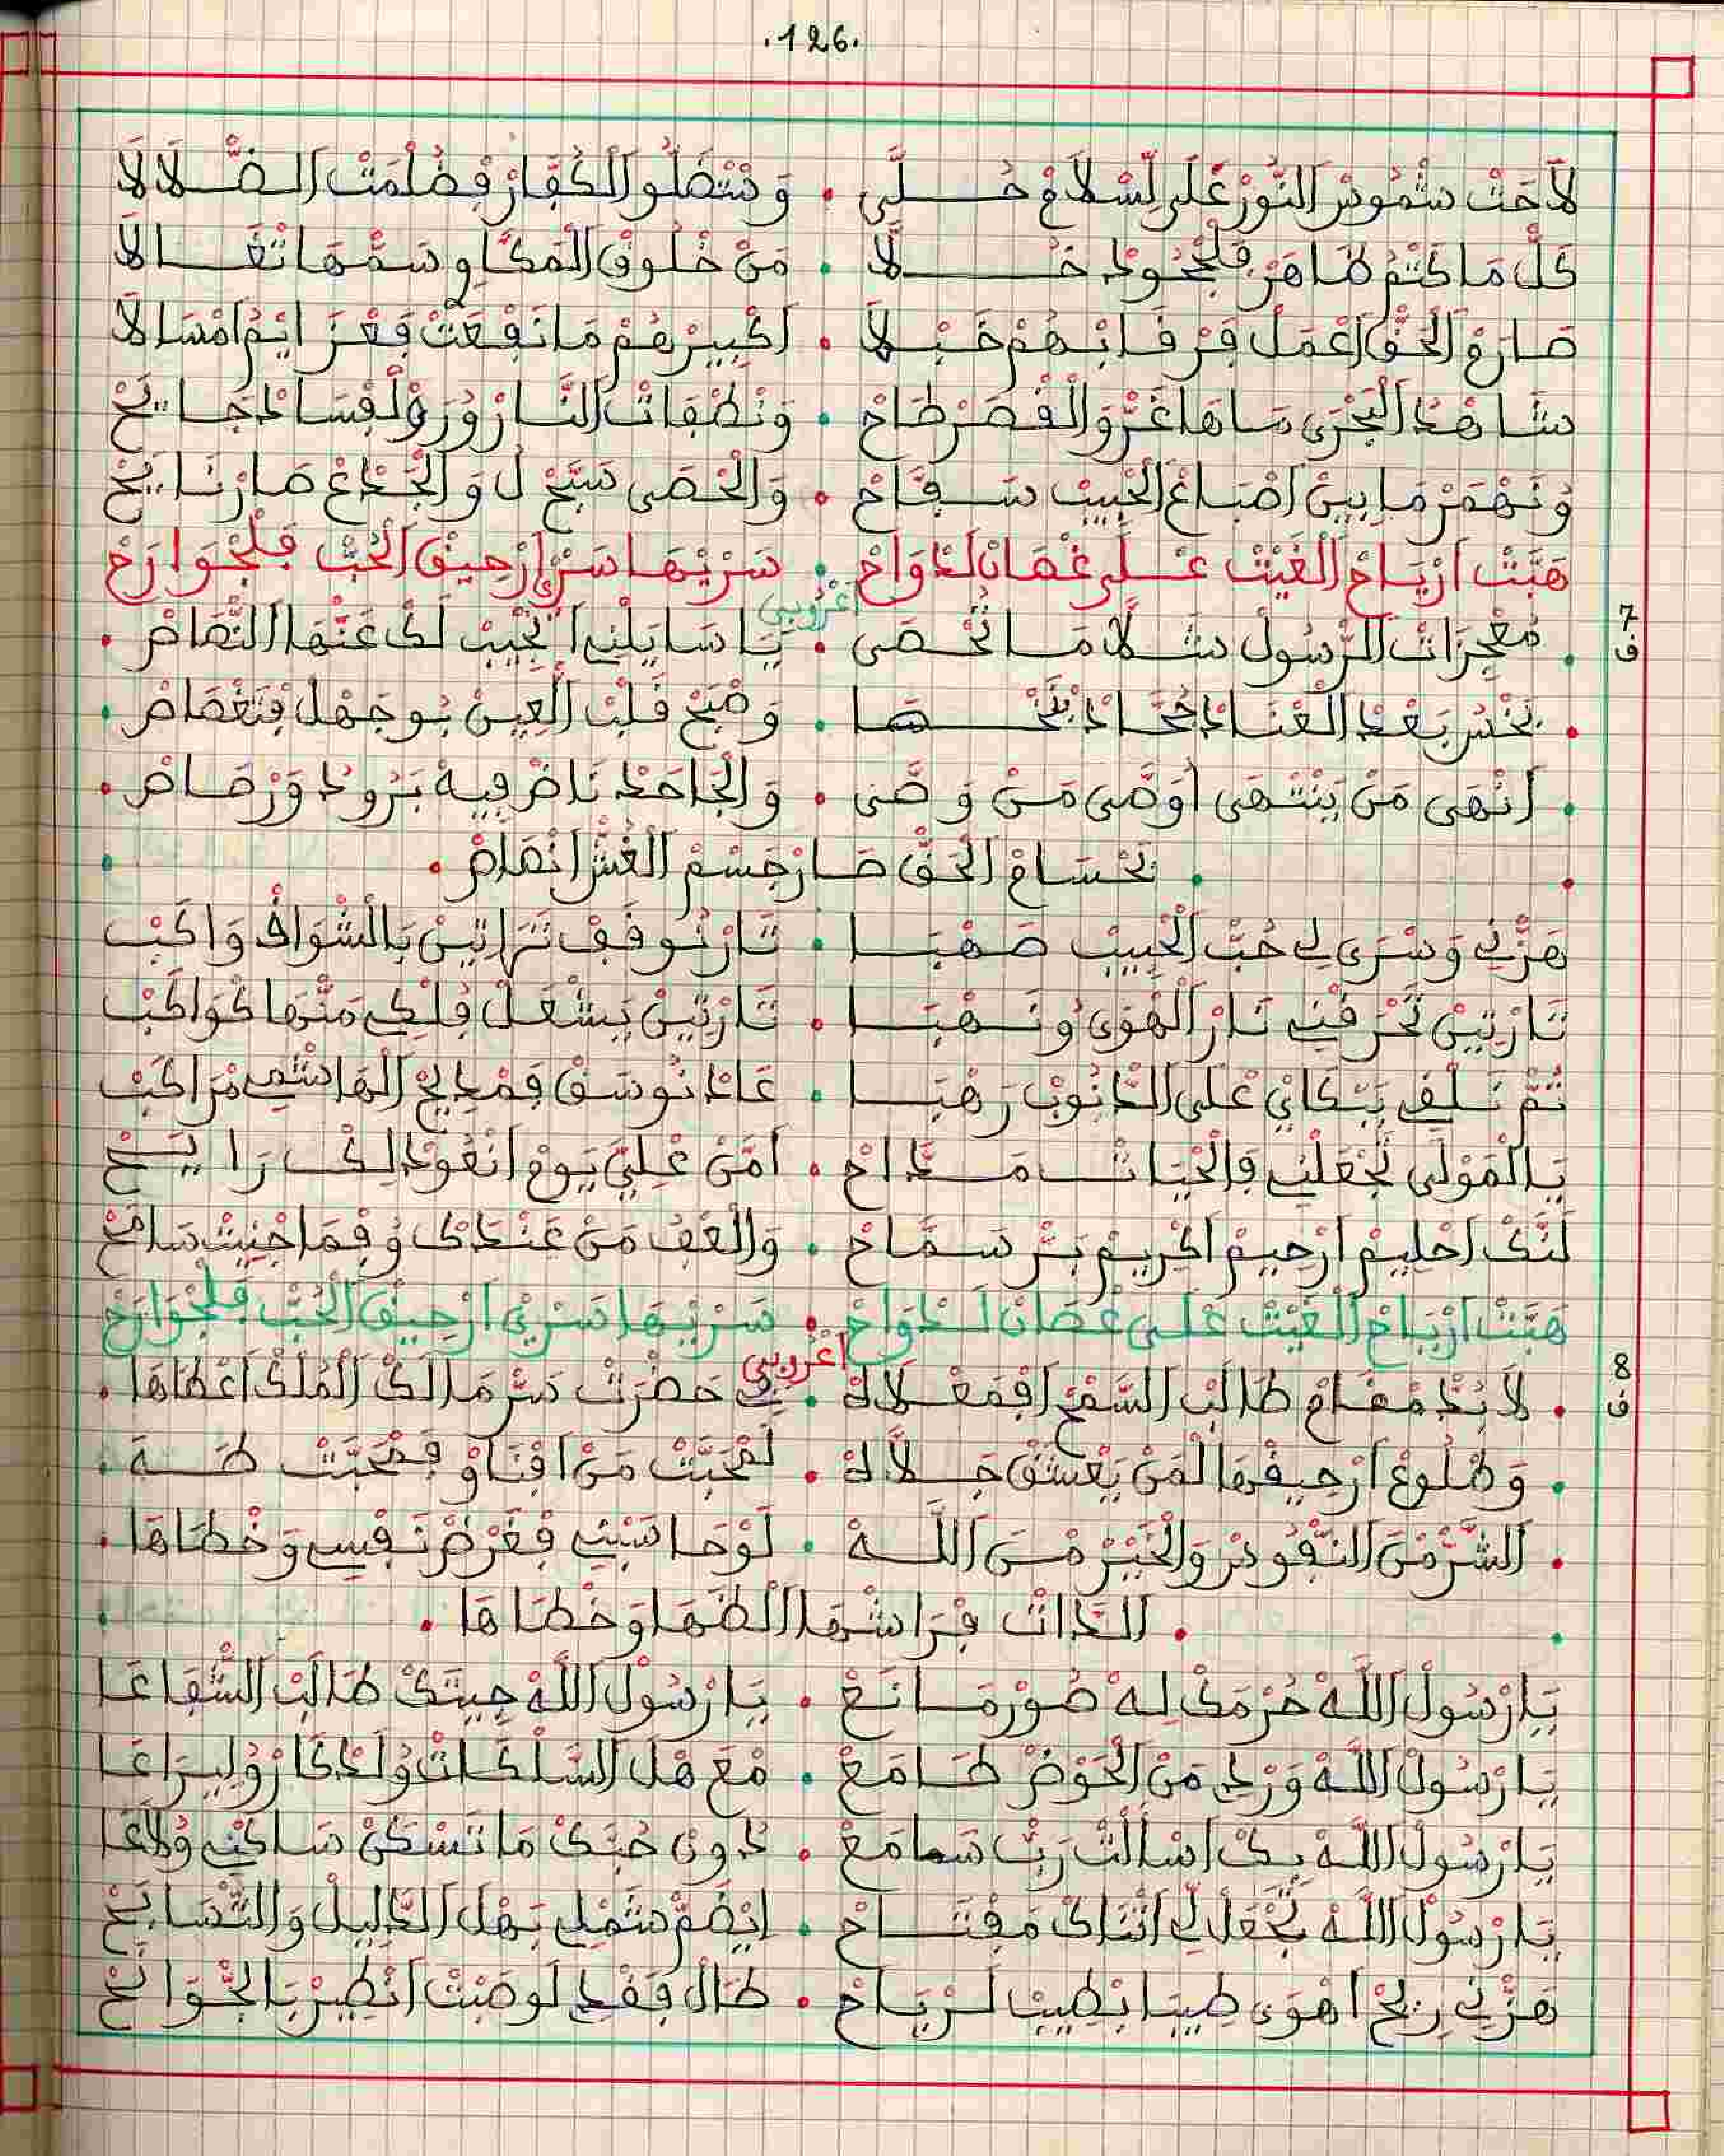 .126.
لَاحَتْ شْمُوسْ النُّورْ عَلَى لِسْلَامْ حُلَّى . وَنْتَضَلُّو الْكُفَّارْ فِضْلَمْتْ الضَّلَالَا
كَلّْ مَا كْتَمْ ظَاهَرْ فَلْجُحُودْ خَلَّا . مَنْ خْلُوقْ الْمَكَّاوِي سَمّْهَا تْعَالَا
صَارَمْ الْحَقّْ اعْمَلْ فَرْقَابْهُمْ خَبْلَا . اكْبِيرْهُمْ مَا نَفْعَتْ فَعْزَايْمُ امْسَالَا
شَاهْدْ الْبَحْرَى سَاهَا غَرّْ وَالْقْصَرْ طَاحْ . وَنْطْفَاتْ النَّارْ وُرَوْ لْفْسَادْ جَايَحْ
وُنَهْمَرْ مَا بِينْ اصْبَاعْ الْحْبِيبْ سَفَّاحْ . وَالْحْصَى سَبَّحْ لُ وَالْجْدَعْ صَارْ نَايَحْ
هَبَّتْ ارْيَاحْ الْغَيْثْ عْلَى غْصَانْ لَدْوَاحْ . سَرْيْهَا سَرَّى ارْحِيقْ الْحُبّْ فَلْجْوَارَحْ
اعْرُوبِي
7
ف
. مُعْجِزَاتْ الرّْسُولْ شَلَّا مَا تُحْصَى . يَا سَايَلْنِي انْجِيبْ لَكْ عَنْهَا النّْصَاصْ .
. وَصْبَحْ قَلْبْ الْعِينْ بُوجَهْلْ فْتَغْصَاصْ .
. اَنْهَى مَنْ يَنْتْهَى اوَصَّى مَنْ وَصَّى . وَالْجَاحَدْ نَاضْ فِيهْ بَرُودْ وَرْصَاصْ .
. بَحْسَامْ الْحَقّْ صَارْ جَسْمْ الْغُشّْ انْصَاصْ .
هَزّْنِي وَسْرَى لِي حُبّْ الْحْبِيبْ صَهْبَا . تَارْ نُوقَفْ تَرَاتِينْ بَالشْوَاقْ وَاكَبْ
تَارْتِينْ تَحْرَقْنِي نَارْ الْهْوَى وُنَهْبَا . تَارْتِينْ يَشْعَلْ فْلْكِي مَنّْهَا كْوَاكَبْ
تُمّْ نَلْقَى بَبْكَايْ عْلَى الدّْنُوبْ رَهْبَا . عَادْ نُوسَقْ فَمْدِيحْ الْهَاشْمِي مْرَاكَبْ
يَا الْمَوْلَى تَجْعَلْنِي فَالْحْيَاتْ مَدَّاحْ . امَنْ عْلِيَّ يَوْمْ انْعُودْ لِكْ رَايَحْ
لَنَّكْ احْلِيمْ ارْحِيمْ اكْرِيمْ بَرّْ سَمَّاحْ . وَالْعَفُ مَنْ عَنْدَكْ وُفْمَا جْنِيتْ سَامَحْ
هَبَّتْ ارْيَاحْ الْغَيْثْ عْلَى غْصَانْ لَدْوَاحْ . سَرْيْهَا سَرَّى ارْحِيقْ الْحُبّْ فَلْجْوَارَحْ
اعْرُوبِي
8
ف
. لَابُدّْ مْقَامْ طَالَبْ السَّمْحْ افْمَعْلَاهْ . فِي حَضْرَتْ سَرّْ مَالَكْ الْمُلْكْ اعْطَاهَا .
. وَطْلُوعْ ارْحِيقْهَا لَمَنْ يَعْشَقْ جَلَّالَهْ . لَمْحَبَّتْ مَنْ افْنَاوْ فَمْحَبَّتْ طَهَ .
. الشَّرّْ مْنَ النّْفُوسْ وَالْخَيْرْ مْنَ اللَّهْ . لَوْحَاسَبْنِي فْغَرْضْ نَفْسِي وَخْطَاهَا .
. الدَّاتْ فْرَاشْهَا الظْمَا وَخْطَاهَا .
يَا رَسُولْ اللَّهْ حُرْمَكْ لِهْ صُورْ مَانَعْ . يَا رْسُولْ اللَّهْ جِيتَكْ طَالَبْ الشّْفَاعَا
يَا رْسُولْ اللَّهْ وَرْدِي مَنْ الْحَوْضْ طَامَعْ . مْعَ هْلْ السَّلْكَاتْ وُلَدْكَارْ وُلِيرَاعَا
يَا رْسُولْ اللَّهْ بِكْ اسْأَلْتْ رَبّْ سَامَعْ . دُونْ حُبَّكْ مَا تَسْكَنْ سَاكْنِي وُلَاعَا
يَا رْسُولْ اللَّهْ تَجْعَلْ لِي اثْنَاكْ مَفْتَاحْ . ايْضَمّْ شَمْلِي بَهْلْ الدّْلِيلْ وَالنّْصَايَحْ
هَزّْنِي رِيحْ اهْوَى طِيبَا ابْطِيبْ لَرْيَاحْ . طَالْ فَقْدِي لَوصَبْتْ انْطِيرْ بَالجّْوَانَحْ